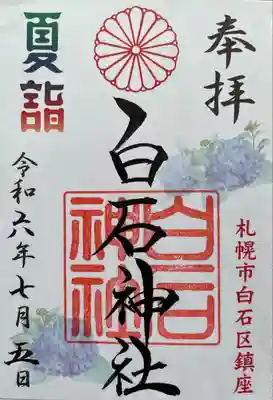 奉拝
札幌市白石区鎮座
白石神社
白石
神社
夏詣
令和六年七月五日